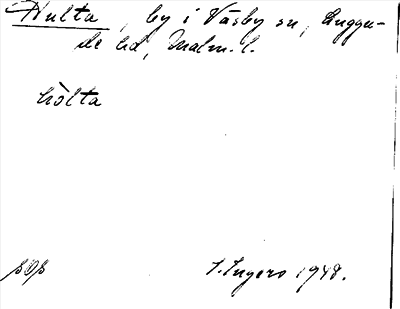 Hulta, by i Väsby sn, Luggu-
de hd, Malm. l.
hòlta
SOS
I. Ingers 1948.